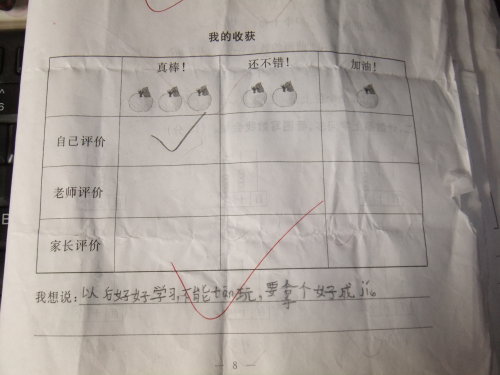 我的收获
真棒! 还不错! 加油!
自己评价
老师评价
家长评价
我想说:以后好好学习,不能tān玩,要拿个好成jì。
— 8 —